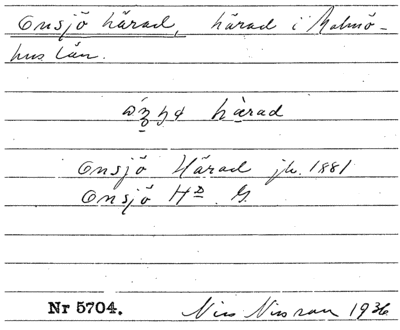 Onsjö härad, härad i Malmö-
hus län.
härad
Onsjö Härad jb. 1881
Onsjö HD. G.
Nr 5704. Nils Nilsson 1936